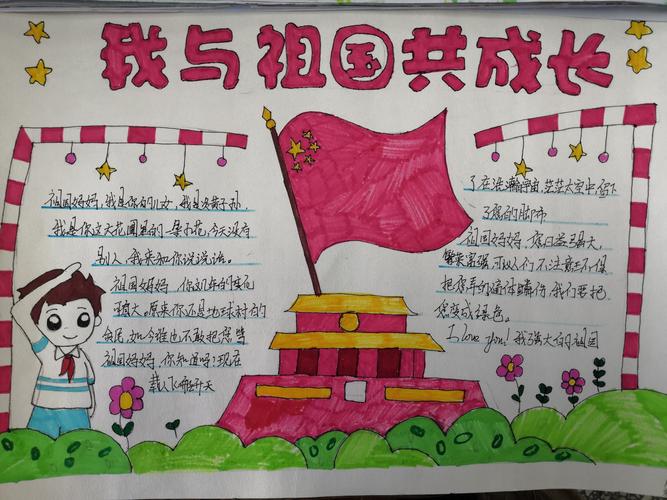 我与祖国共成长
祖国妈妈,我是你的儿女,我是炎黄子孙
我是你这大花园里的一朵小花,今天没有
别人,我来和你说说话。
祖国妈妈,你这几年的变化
真大。原来你还是地球村的
贫民,如今谁也不敢把您等
祖国妈妈,你知道吗?现在
载人飞船升天
了在浩瀚宇宙,茫茫太空中留下
了您的脚印
祖国妈妈,您日益强大,
繁荣富强,可人们不注意正不停
把您年的遍体鳞伤,我们要把
您变成绿色。
I love you!我强大的祖国